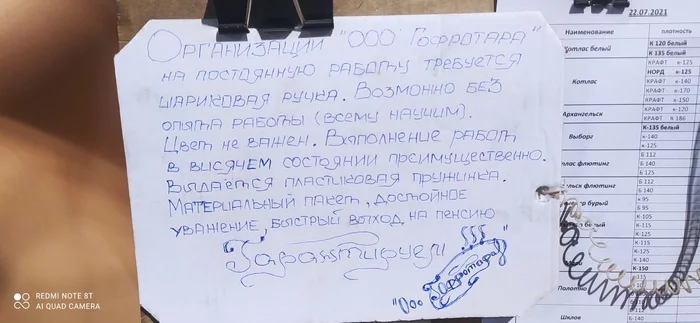 Организации "ООО Гофротара"
на постоянную работу требуется
шариковая ручка. Возмоно без
опыта работы (всему научим).
Цвет не важен. Выполнение работ
в висячем состоянии преимущественно.
Выдаётся пластиковая пружинка.
Материальный пакет, достойное
уважение, быстрый выход на пенсию
Гарантируем
"ООО Гофротара"
22.07.2021
Наименование плотность
Котлас белый К 120 белый
К 135 белый
КРАФТ к-125
НОРД к-125
Котлас КРАФТ к-140
КРАФТ к-170
КРАФТ к-150
Архангельск КРАФТ к-120
КРАФТ К 186
К-135 белый
Выборг к-140
к-125
Б 112
флютинг Б 140
Б 125
Б 112
флютинг Б 140
бурый к 95
К-105
белый к-115
К-125
к-115
к-125
к-140
К-150
к-115
Полотно
Б-112
Шклов Б-140
REDMI NOTE 8T
AI QUAD CAMERA